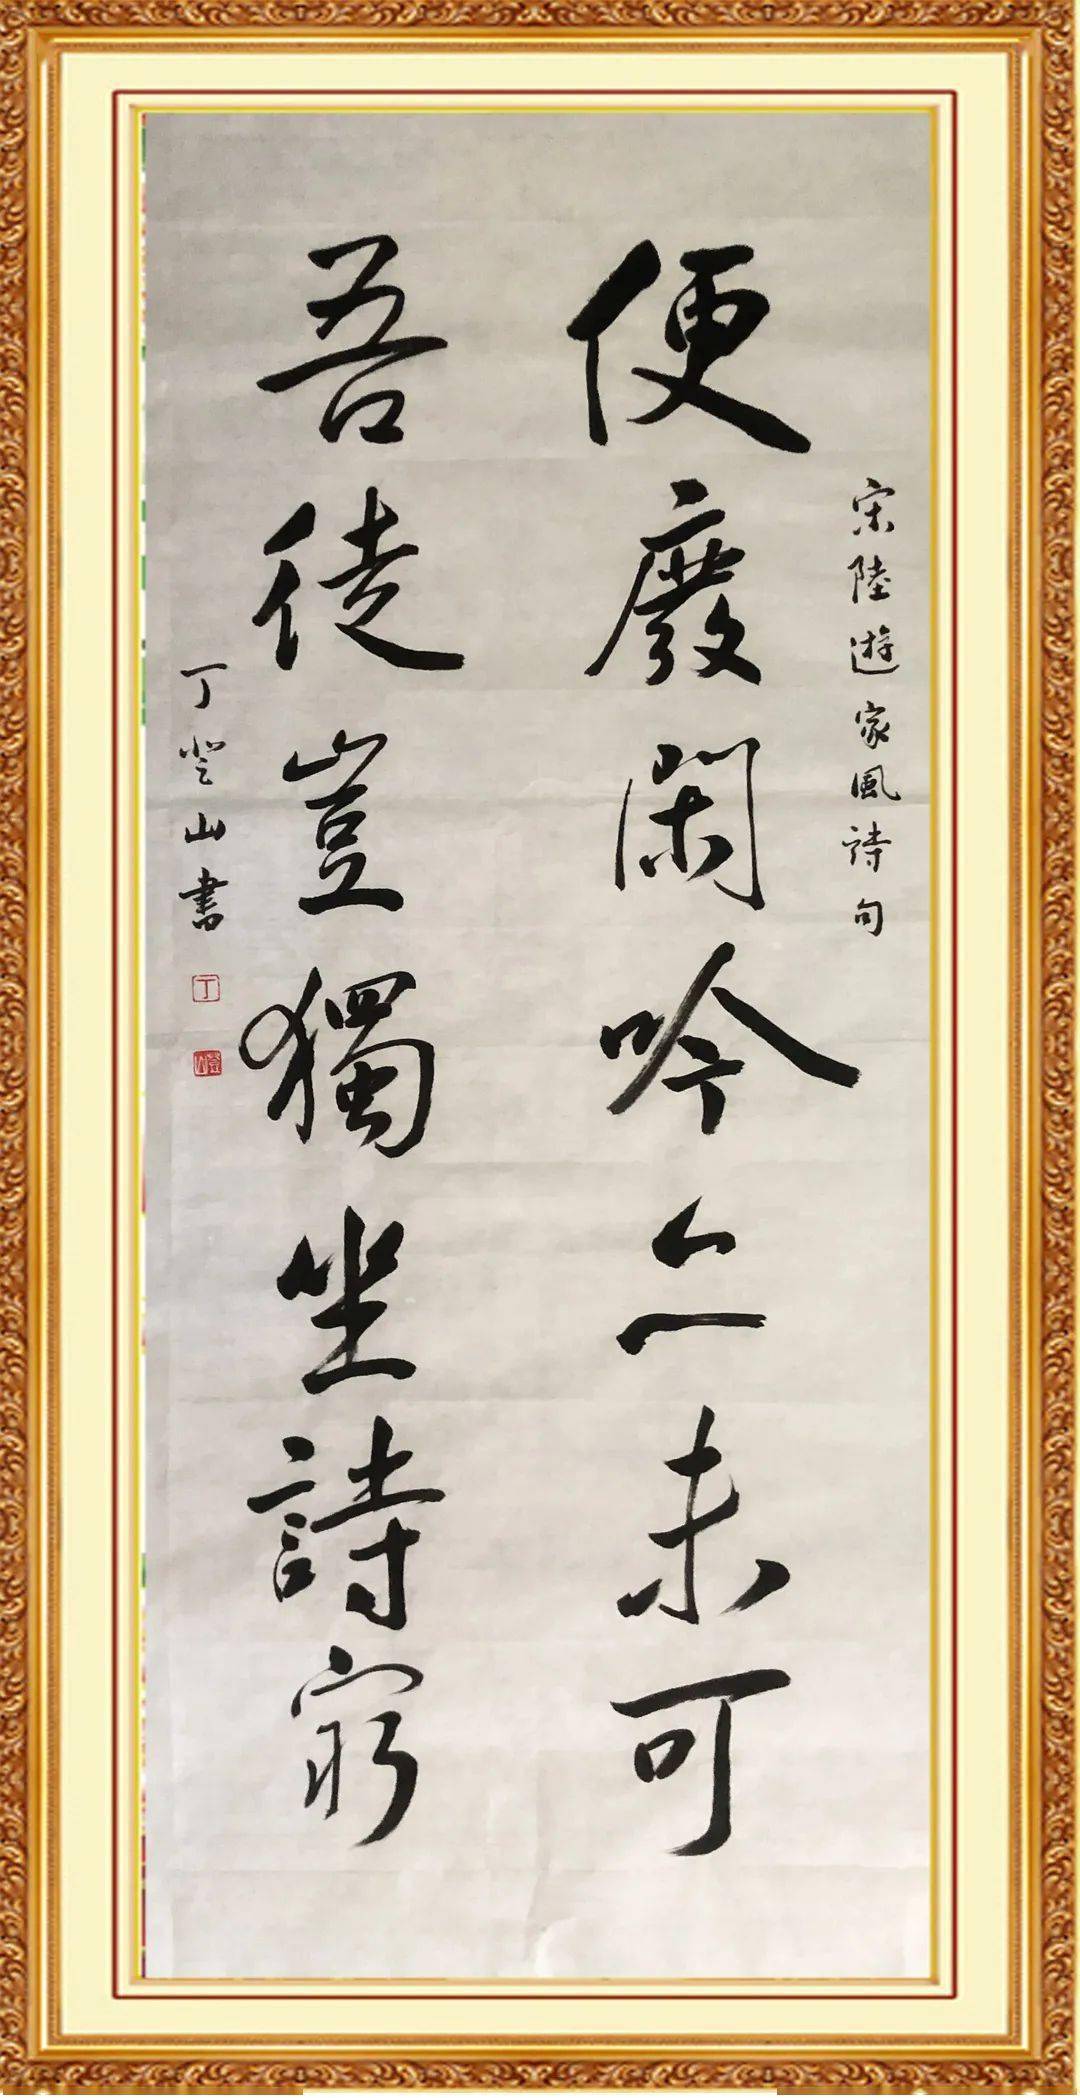 宋陸遊家風詩句
便廢閑吟亦未可
吾徒豈獨坐詩窮
丁登山書
丁
登山